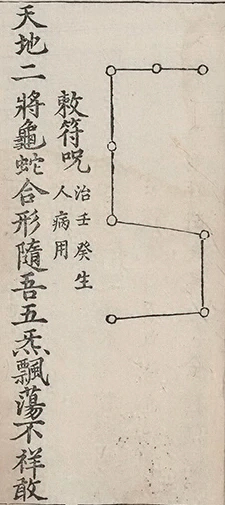 敕符呪
治壬癸生
人病用
天地二將龜蛇合形隨吾五炁飄蕩不祥敢